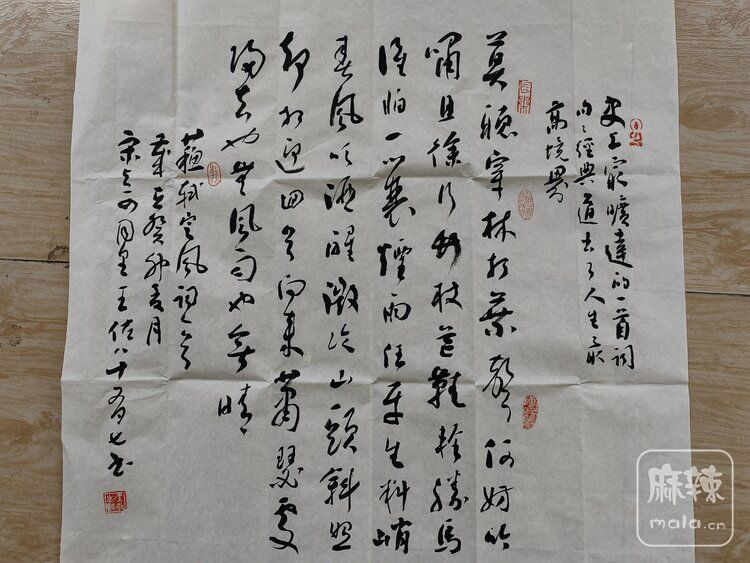 史上最曠達的一首詞
句々經典道出了人生最
高境界
莫聽穿林打葉聲何妨吟
嘯且徐行竹杖芒鞋輕勝馬
誰怕一蓑煙雨任平生料峭
春風吹酒醒微冷山頭斜照
却相迎回首向來蕭瑟處
歸去也無風雨也無晴
蘇軾定風詞一首
歲在癸卯月
王佐八十有七书
麻辣
mala.cn